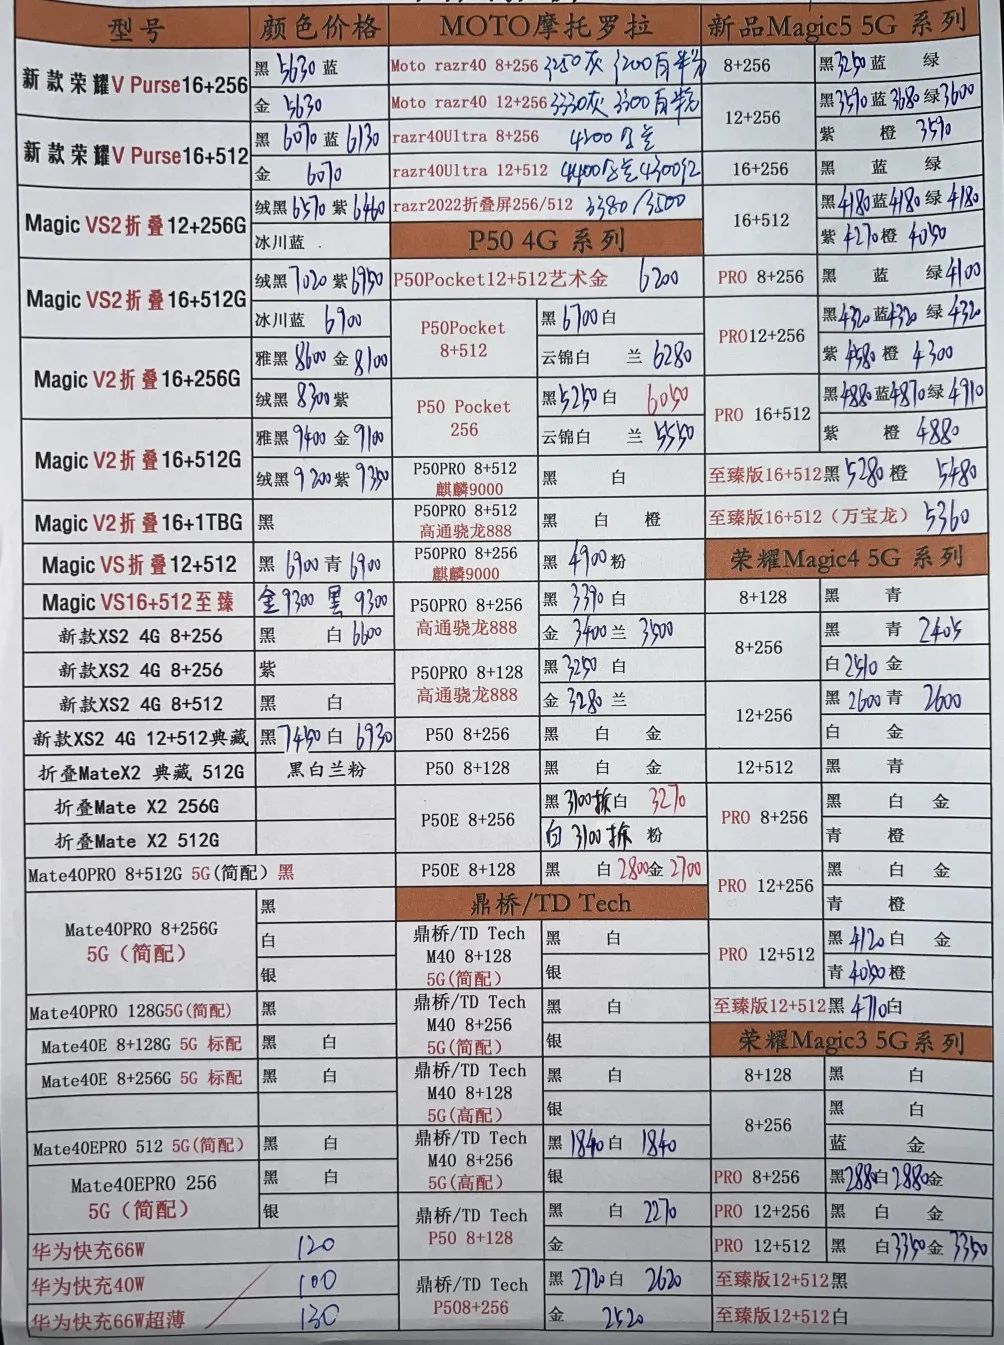 型号 颜色价格
新款荣耀V Purse16+256 黑 5630 蓝
金 5630
新款荣耀V Purse16+512 黑 6070 蓝 6130
金 6070
Magic VS2折叠12+256G 绒黑 6570 紫 6460
冰川蓝
Magic VS2折叠16+512G 绒黑 7020 紫 6950
冰川蓝 6900
Magic V2折叠16+256G 雅黑 8600 金 8100
绒黑 8300 紫
Magic V2折叠16+512G 雅黑 9400 金 9100
绒黑 9200 紫 9350
Magic V2折叠16+1TBG 黑
Magic VS折叠12+512 黑 6900 青 6900
Magic VS16+512至臻 金 9300 黑 9300
新款XS2 4G 8+256 黑 白 6600
新款XS2 4G 8+256 紫
新款XS2 4G 8+512 黑 白
新款XS2 4G 12+512典藏 黑 7450 白 6930
折叠MateX2 典藏 512G 黑白兰粉
折叠Mate X2 256G
折叠Mate X2 512G
Mate40PRO 8+512G 5G(简配) 黑
Mate40PRO 8+256G 黑
5G(简配) 白
银
Mate40PRO 128G5G(简配) 黑
Mate40E 8+128G 5G 标配 黑 白
Mate40E 8+256G 5G 标配 黑 白
Mate40EPRO 512 5G(简配) 黑 白
Mate40EPRO 256 黑 白
5G(简配) 银
华为快充66W 120
华为快充40W 100
华为快充66W超薄 130
MOTO摩托罗拉
Moto razr40 8+256 3250灰 3200百
Moto razr40 12+256 3330灰 3300百
razr40Ultra 8+256 4200
razr40Ultra 12+512 4400 4300红
razr2022折叠屏256/512 3380/3500
P50 4G 系列
P50Pocket12+512艺术金 6200
P50Pocket 黑 6700 白
8+512 云锦白 兰 6280
P50 Pocket 黑 5250 白 6050
256 云锦白 兰 5550
P50PRO 8+512 黑 白
麒麟9000
P50PRO 8+512 黑 白 橙
高通骁龙888
P50PRO 8+256 黑 4900 粉
麒麟9000
P50PRO 8+256 黑 3390 白
高通骁龙888 金 3400 兰 3500
P50PRO 8+128 黑 3250 白
高通骁龙888 金 3280 兰
P50 8+256 黑 白 金
P50 8+128 黑 白 金
P50E 8+256 黑 3100拆 白 3270
白 3100拆 粉
P50E 8+128 黑 白 2800 金 2700
鼎桥/TD Tech
鼎桥/TD Tech 黑 白
M40 8+128
5G(简配) 银
鼎桥/TD Tech 黑 白
M40 8+256
5G(简配) 银
鼎桥/TD Tech 黑 白
M40 8+128
5G(高配) 银
鼎桥/TD Tech 黑 1840 白 1840
M40 8+256
5G(高配) 银
鼎桥/TD Tech 黑 白 2270
P50 8+128 金
鼎桥/TD Tech 黑 2720 白 2620
P508+256 金 2520
新品Magic5 5G 系列
8+256 黑 3250 蓝 绿
12+256 黑 3590 蓝 3680 绿 3600
紫 橙 3590
16+256 黑 蓝 绿
16+512 黑 4180 蓝 4180 绿 4180
紫 4270 橙 4050
PRO 8+256 黑 蓝 绿 4100
PRO12+256 黑 4320 蓝 4320 绿 4320
紫 4580 橙 4300
PRO 16+512 黑 4880 蓝 4870 绿 4910
紫 橙 4880
至臻版16+512 黑 5280 橙 5480
至臻版16+512(万宝龙) 5360
荣耀Magic4 5G 系列
8+128 黑 青
8+256 黑 青 2405
白 2510 金
12+256 黑 2600 青 2600
白 金
12+512 黑 青
PRO 8+256 黑 白 金
青 橙
PRO 12+256 黑 白 金
青 橙
PRO 12+512 黑 4120 白 金
青 4050 橙
至臻版12+512 黑 4710 白
荣耀Magic3 5G系列
8+128 黑 白
8+256 黑 白
蓝 金
PRO 8+256 黑 2880 白 2880 金
PRO 12+256 黑 白 金
PRO 12+512 黑 白 3350 金 3350
至臻版12+512黑
至臻版12+512白